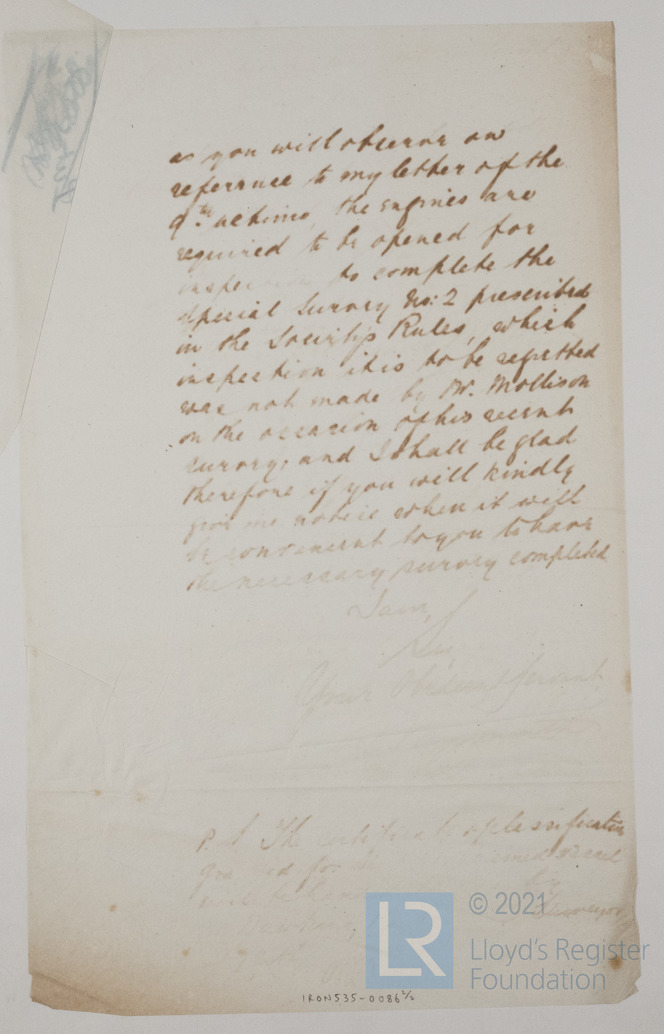 as you will observe on
reference to my letter of the
9th ultimo, the engines are
required to be opened for
inspection to complete the
special Survey No: 2 prescribed
in the Society's Rules, which
inspection it is to be regretted
was not made by Mr. Mollison
on the occasion of his recent
survey, and I shall be glad
therefore if you will kindly
give me notice when it will
be convenient to you to have
the necessary survey completed
I am,
Sir,
Your Obedient Servant
P. S. The certificate of classification
for named vessel
will be
Surveyor
© 2021
LR
Lloyd's Register
Foundation
IRON535-0086 2/2